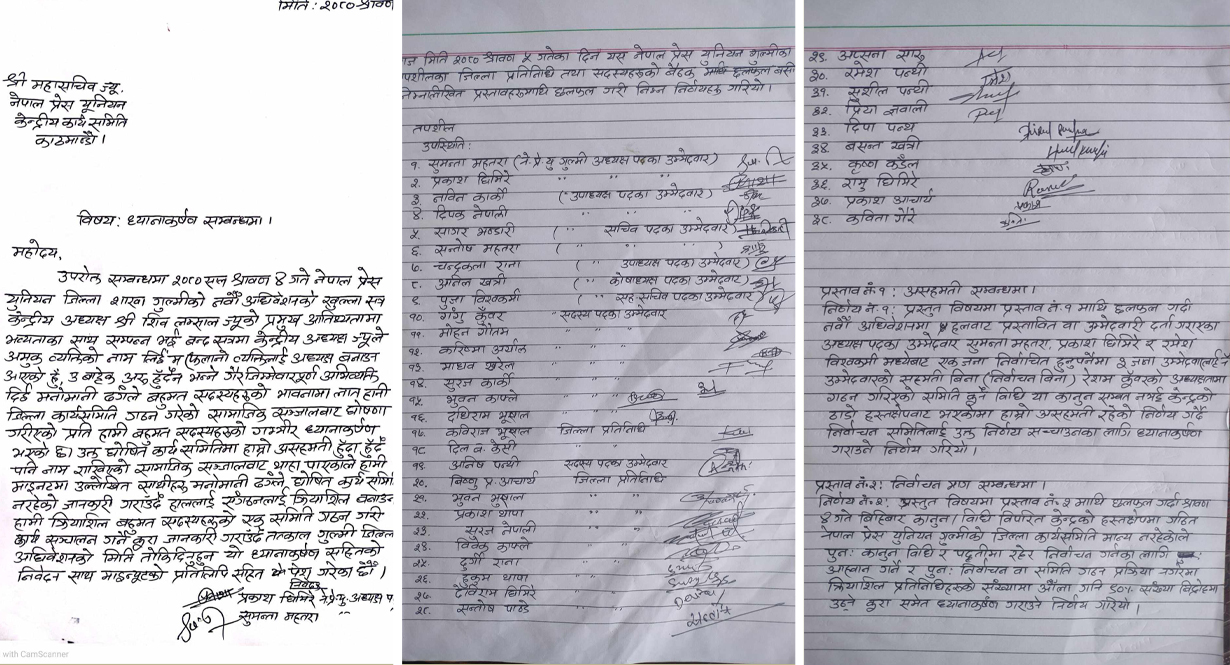 मिति: २०८० श्रावण
श्री महासचिव ज्यू.
नेपाल प्रेस यूनियन
केन्द्रीय कार्य समिति
काठमाण्डौ ।
विषय: ध्यानाकर्षण सम्बन्धमा ।
महोदय,
उपरोक्त सम्बन्धमा २०८० साल श्रावण ४ गते नेपाल प्रेस
युनियन जिल्ला शाखा गुल्मीको नवौं अधिवेशनको खुल्ला सत्र
केन्द्रीय अध्यक्ष श्री शिव लम्साल ज्यूको प्रमुख आतिथ्यतामा
भव्यताका साथ सम्पन्न भई बन्द सत्रमा केन्द्रीय अध्यक्ष ज्यूले
अमुक व्यक्तिको नाम लिई म (फलानो व्यक्तिलाई अध्यक्ष बनाउन
आएको हुँ, उ बाहेक अरु हुँदैन भन्ने गैरजिम्मेवारपूर्ण अभिव्यक्ति
दिई मनोमानी ढंगले बहुमत सदस्यहरुको भावनामा लात हानी
जिल्ला कार्यसमिति गठन गरेको सामाजिक सञ्जालबाट घोषणा
गरीएको प्रति हामी बहुमत सदस्यहरुको गम्भीर ध्यानाकर्षण
भएको छ। उक्त घोषित कार्य समितिमा हाम्रो असहमती हुँदा हुँदै
पनि नाम राखिएको सामाजिक सञ्जालबाट थाहा पाएकाले हामी
माइनटमा उल्लेखित साथीहरु मनोमानी ढंगले घोषित कार्य समिति
नरहेको जानकारी गराउँदै हाललाई संगठनलाई क्रियाशिल बनाउन
हामी क्रियाशिल बहुमत सदस्यहरुको एक समिति गठन गरी
कार्य सञ्चालन गर्ने कुरा जानकारी गराउँदै तत्काल गुल्मी जिल्ला
अधिवेशनको मिति तोकिदिनुहुन यो ध्यानाकर्षण सहितको
निवेदन साथ माइन्यूटको प्रतिलिपि सहित पेश गरेका छौं ।
निवेदक
प्रकाश घिमिरे ने.प्रे.यु. अध्यक्ष प
सुमन्ता महतरा " "
with CamScanner
मिति २०८० श्रावण ५ गतेका दिन यस नेपाल प्रेस युनियन गुल्मीका
तपशीलका जिल्ला प्रतिनिधि तथा सदस्यहरुको बैठक छलफल बसी
निम्नलिखित प्रस्तावहरुमाथि छलफल गरी निम्न निर्णयहरु गरियो ।
तपशील
उपस्थिति:
१. सुमन्ता महतरा (ने.प्रे.यु गुल्मी अध्यक्ष पदका उम्मेदवार)
२. प्रकाश घिमिरे " " "
३. नविन कार्की (" उपाध्यक्ष पदका उम्मेदवार)
४. दिपक नेपाली " " "
५. सागर भण्डारी (" सचिव पदका उम्मेदवार)
६. सन्तोष महतरा (" " " )
७. चन्द्रकला राना (" उपाध्यक्ष पदका उम्मेदवार)
८. अमृत खत्री (" कोषाध्यक्ष पदका उम्मेदवार)
९. पुजा विश्वकर्मा (" सह सचिव पदका उम्मेदवार)
१०. गंगु कुँवर सदस्य पदका उम्मेदवार
११. मोहन गौतम " " "
१२. करिष्मा अर्याल " " "
१३. माधव भुरेल " " "
१४. सुरज कार्की " "
१५. भुवन काफ्ले " " "
१६. दधिराम भुषाल " " "
१७. कविराज भुषाल जिल्ला प्रतिनिधि
१८. दिल ब. केसी " "
१९. अनिष पन्थी सदस्य पदका उम्मेदवार
२०. विष्णु प्र. आचार्य जिल्ला प्रतिनिधि
२१. भुवन भुषाल " "
२२. प्रकाश थापा " "
२३. सुरज नेपाली " "
२४. विवेक काफ्ले " "
२५. दुर्गा राना " "
२६. हुकुम थापा " "
२७. देविराम घिमिरे " "
२८. सन्तोष पाण्डे " "
२९. अप्सना सारु
३०. रमेश पन्थी
३१. सुशील पन्थी
३२. प्रिया ज्ञवाली
३३. दिपा पन्थ
३४. बसन्त खत्री
३५. कृष्ण कंडेल
३६. रामु घिमिरे
३७. प्रकाश आचार्य
३८. कविता गैरे
प्रस्ताव नं. १: असहमती सम्बन्धमा ।
निर्णय नं. १: प्रस्तुत विषयमा प्रस्ताव नं. १ माथि छलफल गर्दा
नवौं अधिवेशनमा हलबाट प्रस्तावित वा उम्मेदवारी दर्ता गराएका
अध्यक्ष पदका उम्मेदवार सुमन्ता महतरा, प्रकाश घिमिरे र रमेश
विश्वकर्मा मध्येबाट एक जना निर्वाचित हुनुपर्नेमा ३ जना उम्मेदवारलाई नै
उम्मेदवारको सहमती बिना (निर्वाचन बिना) रेशम कुँवरको अध्यक्षतामा
गठन गरिएको समिति कुनै विधि वा कानुन सम्मत नभई केन्द्रको
ठाडो हस्तक्षेपबाट भएकोमा हाम्रो असहमती रहेको निर्णय गर्दै
निर्वाचन समितिलाई उक्त निर्णय सच्याउनका लागि ध्यानाकर्षण
गराउने निर्णय गरियो ।
प्रस्ताव नं. २: निर्वाचन माग सम्बन्धमा ।
निर्णय नं. २: प्रस्तुत विषयमा प्रस्ताव नं. २ माथि छलफल गर्दा श्रावण
४ गते बिहिवार कानुन/विधि विपरित केन्द्रको हस्तक्षेपमा गठित
नेपाल प्रेस युनियन गुल्मीको जिल्ला कार्यसमिति मान्य नरहेकोले
पुन: कानुन विधि र पद्धतीमा रहेर निर्वाचन गर्नका लागि
आह्वान गर्ने र पुन: निर्वाचन वा समिति गठन प्रक्रिया नगरेमा
क्रियाशिल प्रतिनिधिहरुको संख्यामा औंला गनि ५०% संख्या विद्रोहमा
उठ्ने कुरा समेत ध्यानाकर्षण गराउने निर्णय गरियो ।